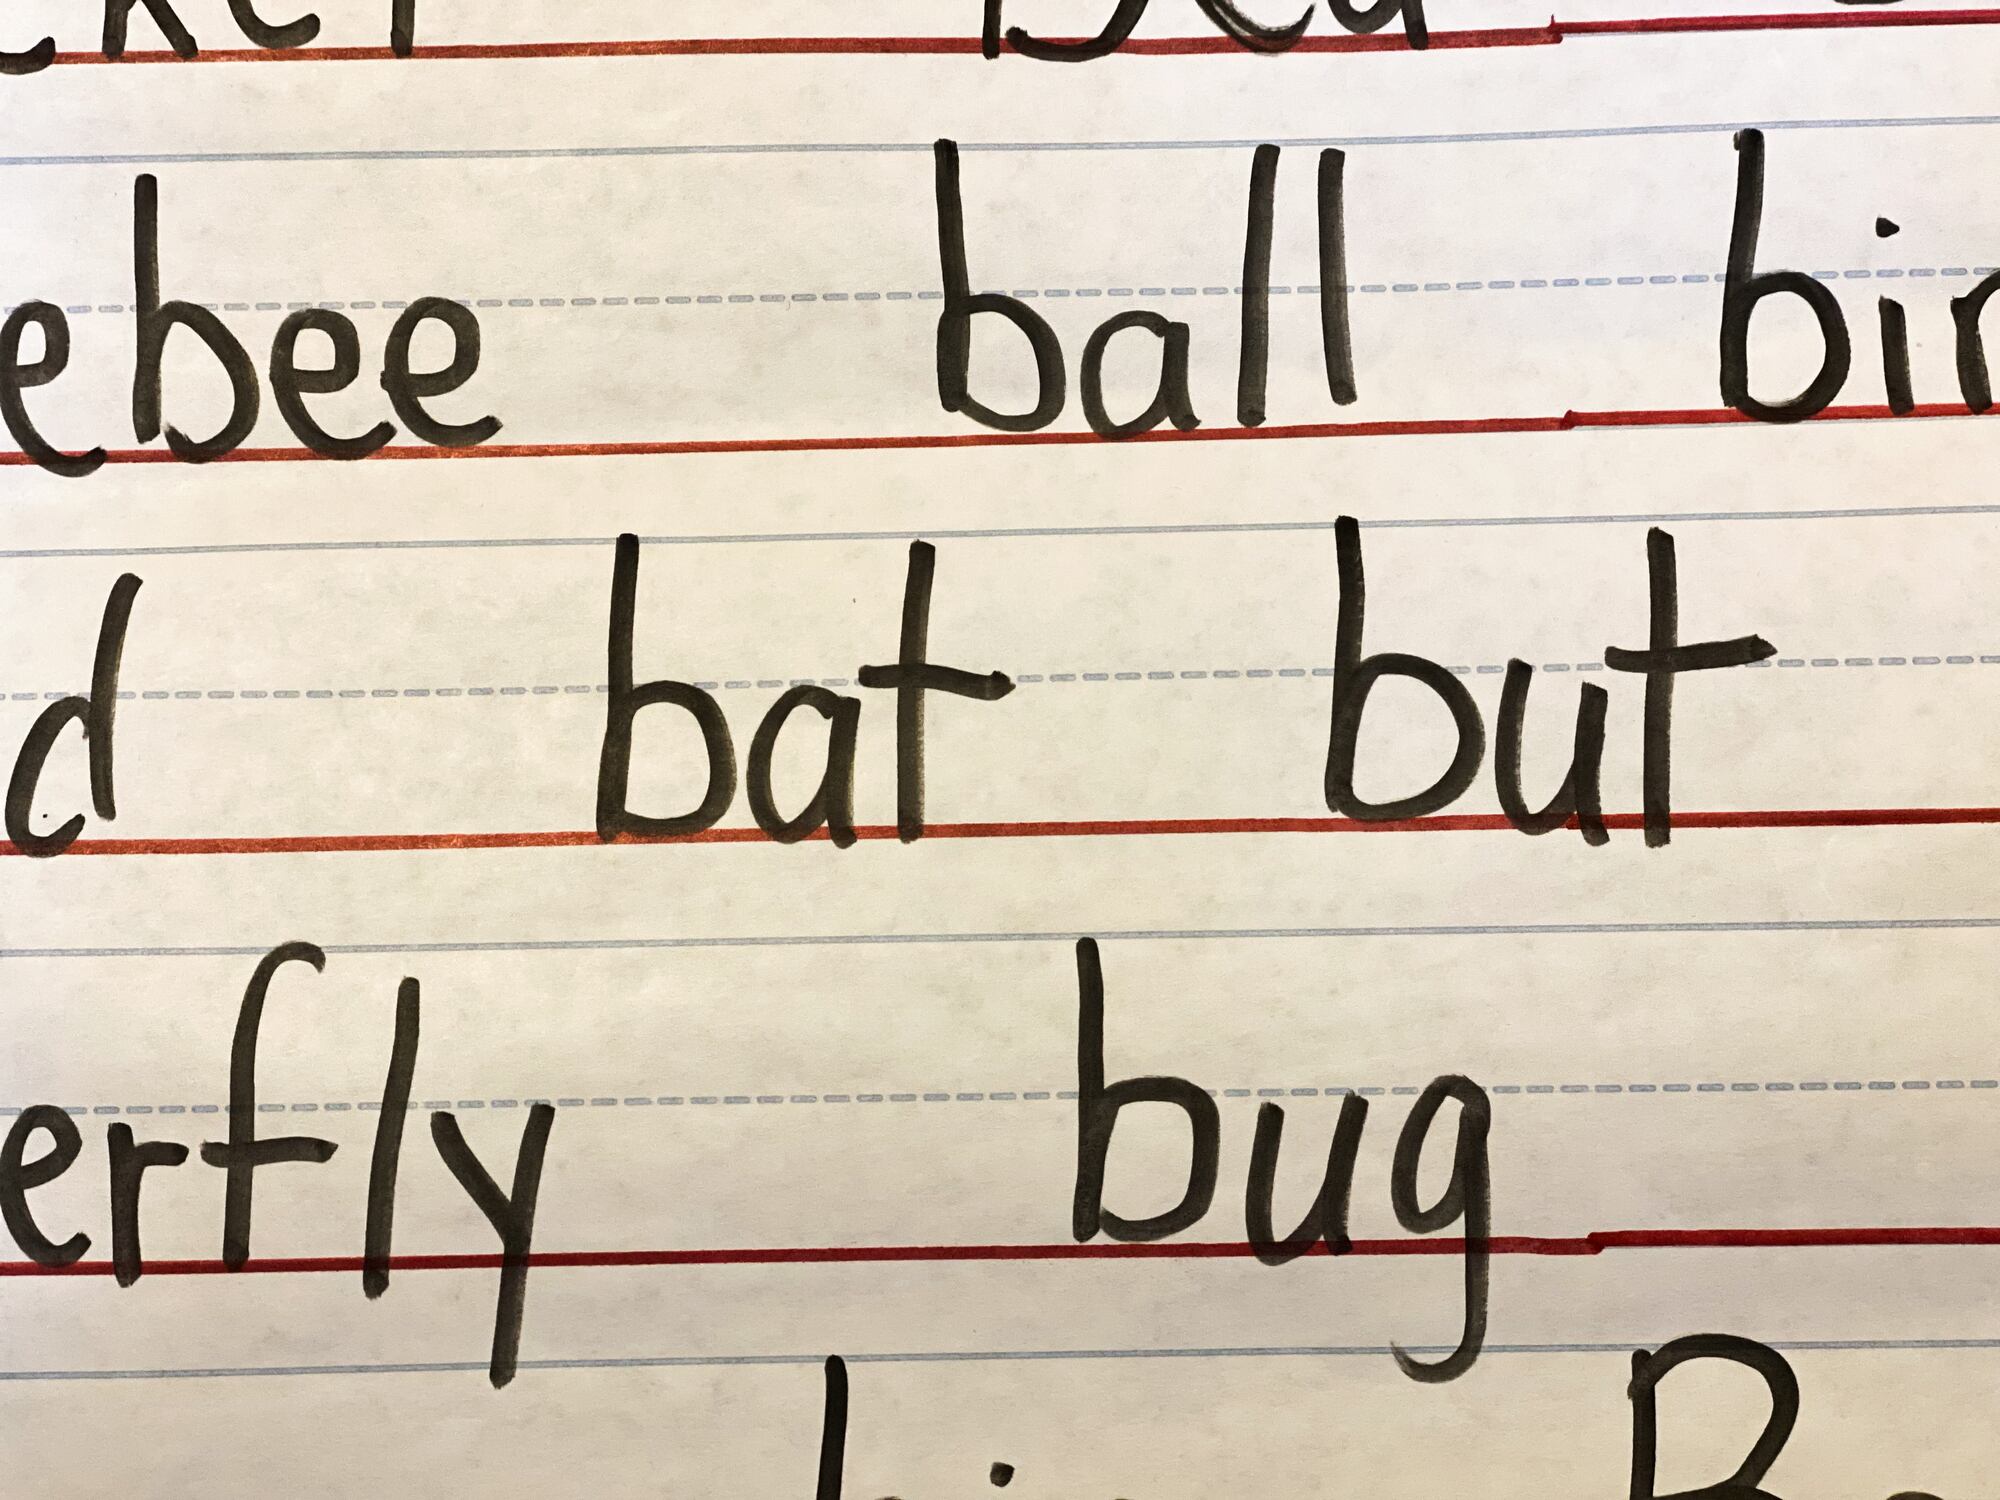 ebee ball bir
d bat but
erfly bug